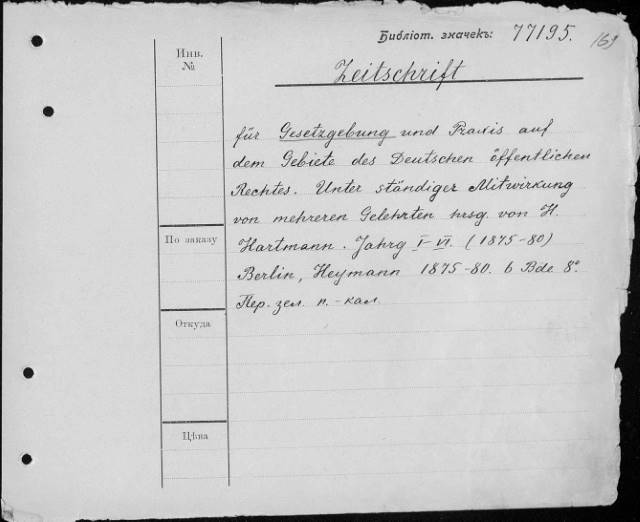 Библіот. значекъ: 77195.
169
Инв.
№
Zeitschrift
für Gesetzgebung und Praxis auf
dem Gebiete des Deutschen öffentlichen
Rechtes. Unter ständiger Mitwirkung
von mehreren Gelehrten hrsg. von H.
Hartmann. Jahrg I-VI. (1875-80)
Berlin, Heymann 1875-80. 6 Bde 8°
Пер. зел. п.-кал.
По заказу
Откуда
Цѣна